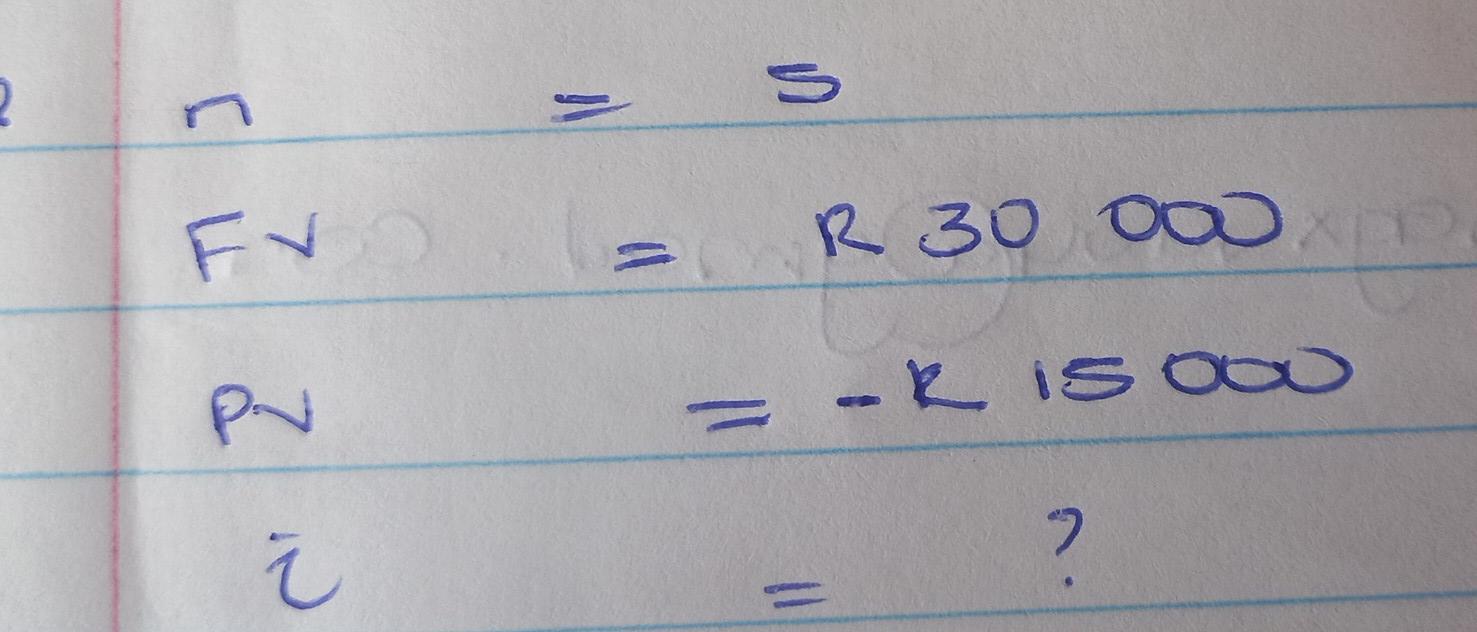 n = 5
FV = R 30 000
PV = -R 15 000
i = ?